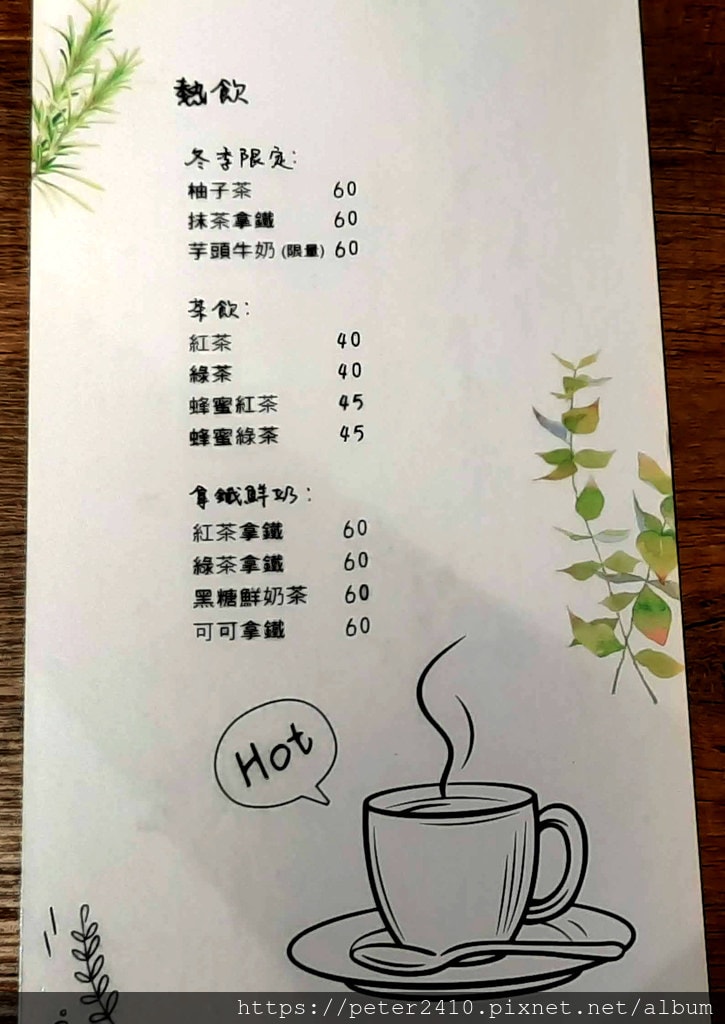 熱飲
冬季限定:
柚子茶 60
抹茶拿鐵 60
芋頭牛奶 (限量) 60
茶飲:
紅茶 40
綠茶 40
蜂蜜紅茶 45
蜂蜜綠茶 45
拿鐵鮮奶:
紅茶拿鐵 60
綠茶拿鐵 60
黑糖鮮奶茶 60
可可拿鐵 60
Hot
https://peter2410.pixnet.net/album